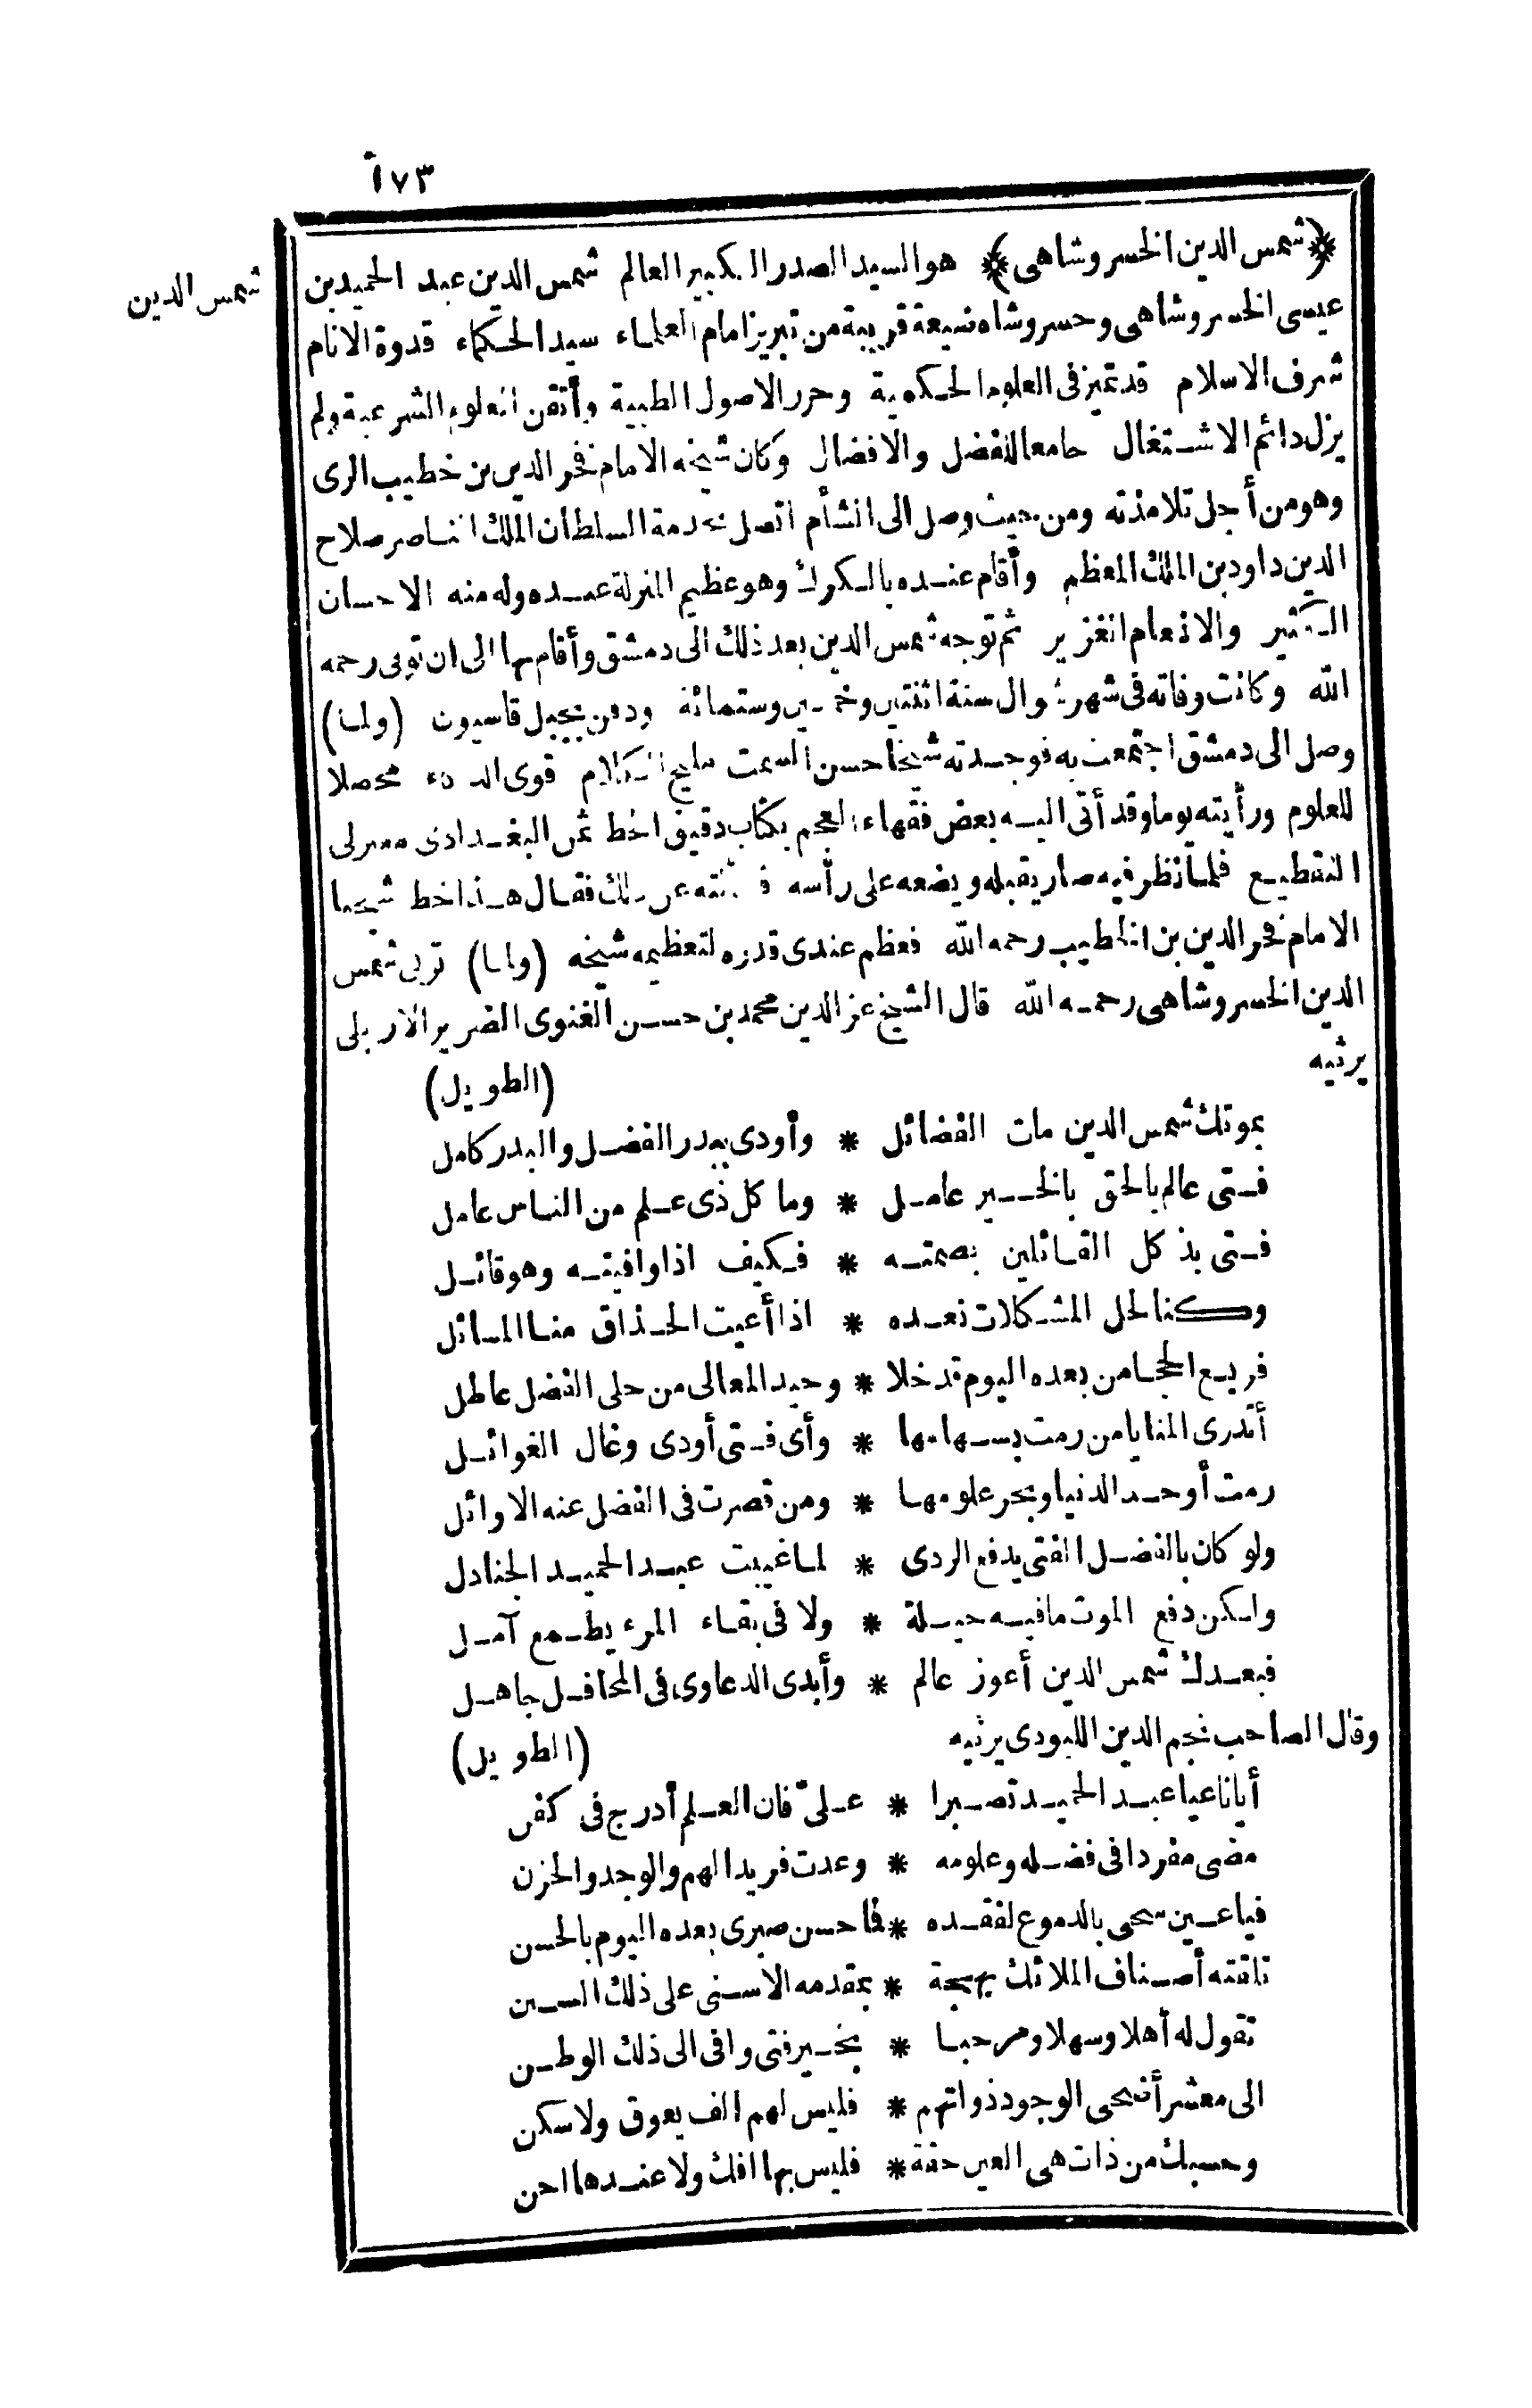 ١٧٣
شمس الدين
﴿شمس الدين الخسروشاهى﴾ هو السيد الصدر الكبير العالم شمس الدين عبد الحميد بن
عيسى الخسروشاهى وخسروشاه ضيعة قريبة من تبريز امام العلماء سيد الحكماء قدوة الانام
شرف الاسلام قد تميز فى العلوم الحكمية وحرر الاصول الطبية وأتقن العلوم الشرعية ولم
يزل دائم الاشتغال جامعا للفضل والافضال وكان شيخه الامام فخر الدين بن خطيب الرى
وهو من أجل تلامذته ومن حيث وصل الى الشأم اتصل بخدمة السلطان الملك الناصر صلاح
الدين داود بن الملك المعظم وأقام عنده بالكرك وهو عظيم المنزلة عنده وله منه الاحسان
الكثير والانعام الغزير ثم توجه شمس الدين بعد ذلك الى دمشق وأقام بها الى ان توفى رحمه
الله وكانت وفاته فى شهر شوال سنة اثنتين وخمسين وستمائة ودفن بجبل قاسيون (ولما)
وصل الى دمشق اجتمعت به فوجدته شيخا حسن السمت مليح الكلام قوى الذكاء محصلا
للعلوم ورأيته يوما وقد أتى اليه بعض فقهاء العجم بكتاب دقيق الخط ثمن البغدادى معتزلى
التقطيع فلما نظر فيه صار يقبله ويضعه على رأسه فسألته عن ذلك فقال هذا خط شيخنا
الامام فخر الدين بن الخطيب رحمه الله فعظم عندى قدره لتعظيمه شيخه (ولما) توفى شمس
الدين الخسروشاهى رحمه الله قال الشيخ عز الدين محمد بن حسن الغنوى الضرير الاربلى
يرثيه (الطويل)
بموتك شمس الدين مات الفضائل * وأودى ببدر الفضل والبدر كامل
فتى عالم بالحق بالخير عامل * وما كل ذى علم من الناس عامل
فتى بذ كل القائلين بصمته * فكيف اذا وافيته وهو قائل
وكنا لحل المشكلات نعده * اذا أعيت الحذاق منا المسائل
فريع الحجا من بعده اليوم قد خلا * وجيد المعالى من حلى الفضل عاطل
أتدرى المنايا من رمت بسهامها * وأى فتى أودى وغال الغوائل
رمت أوحد الدنيا وبحر علومها * ومن قصرت فى الفضل عنه الاوائل
ولو كان بالفضل الفتى يدفع الردى * لما غيبت عبد الحميد الجنادل
ولكن دفع الموت ما فيه حيلة * ولا فى بقاء المرء يطمع آمل
فبعدك شمس الدين أعوز عالم * وأبدى الدعاوى فى المحافل جاهل
وقال الصاحب نجم الدين اللبودى يرثيه (الطويل)
أيا ناعيا عبد الحميد تصبرا * علىّ فان العلم أدرج فى كفن
مضى مفردا فى فضله وعلومه * وعدت فريدا لهم والوجد والحزن
فيا عين سحى بالدموع لفقده * فما حسن صبرى بعده اليوم بالحسن
تلقته أصناف الملائك بهجة * بمقدمه الاسنى على ذلك السنن
تقول له أهلا وسهلا ومرحبا * بخير فتى وافى الى ذلك الوطن
الى معشر أضحى الوجود ذواتهم * فليس لهم الف يعوق ولا سكن
وحسبك من ذات هى العين حقة * فليس بها افك ولا عندها احن